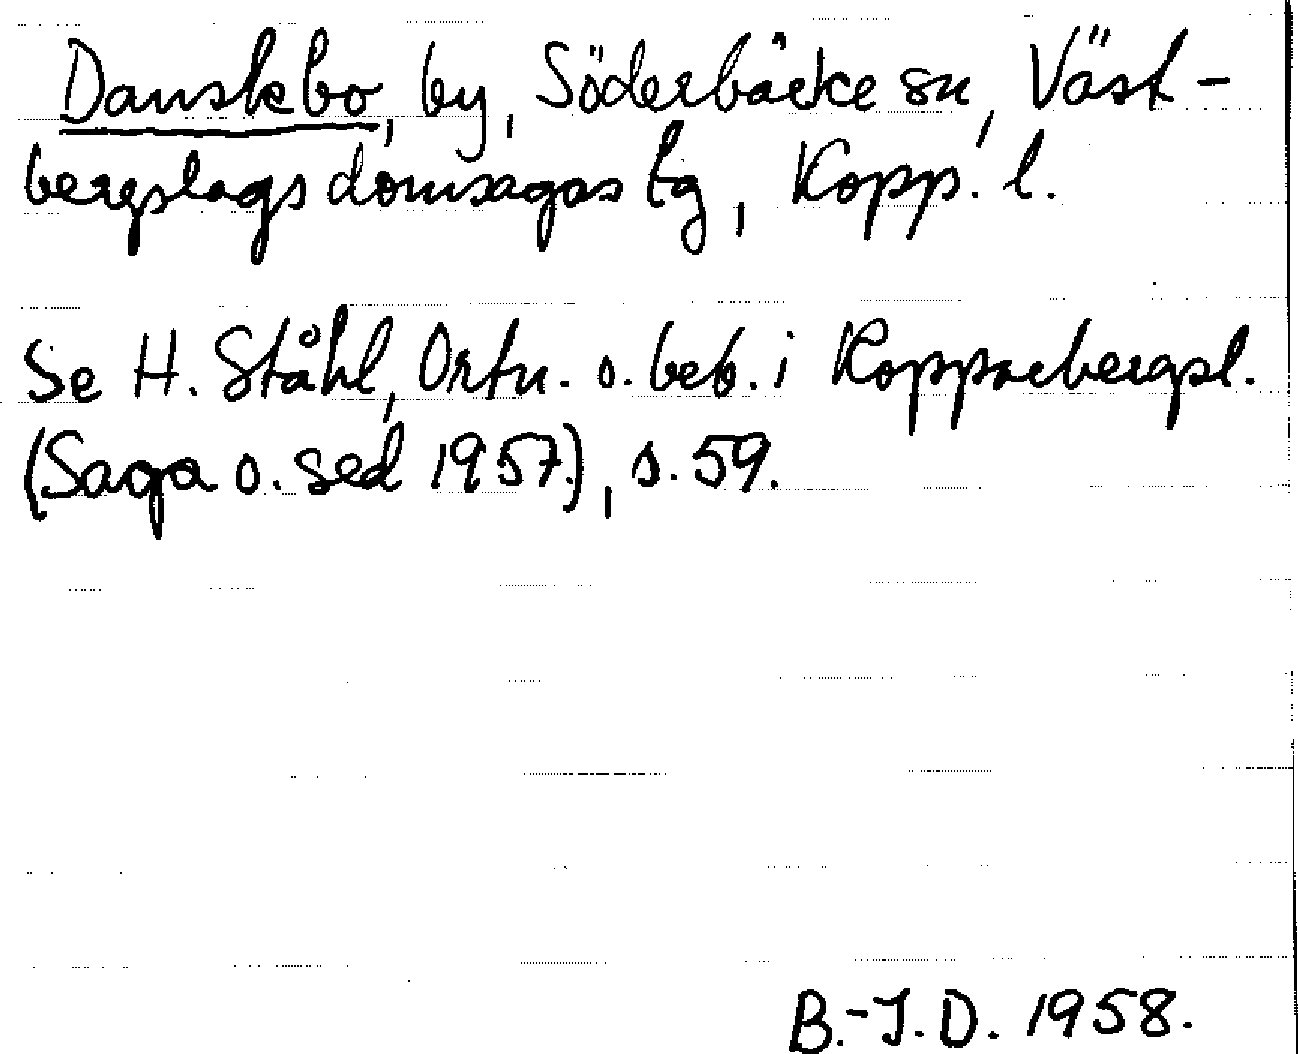 Danskbo, by, Söderbäcke sn, Väst-
bergslags domsagas tg, Kopp. l.
Se H. Ståhl, Ortn. o. beb. i Kopparbergsl.
(Saga o. sed 1957), s. 59.
B.-J.D. 1958.